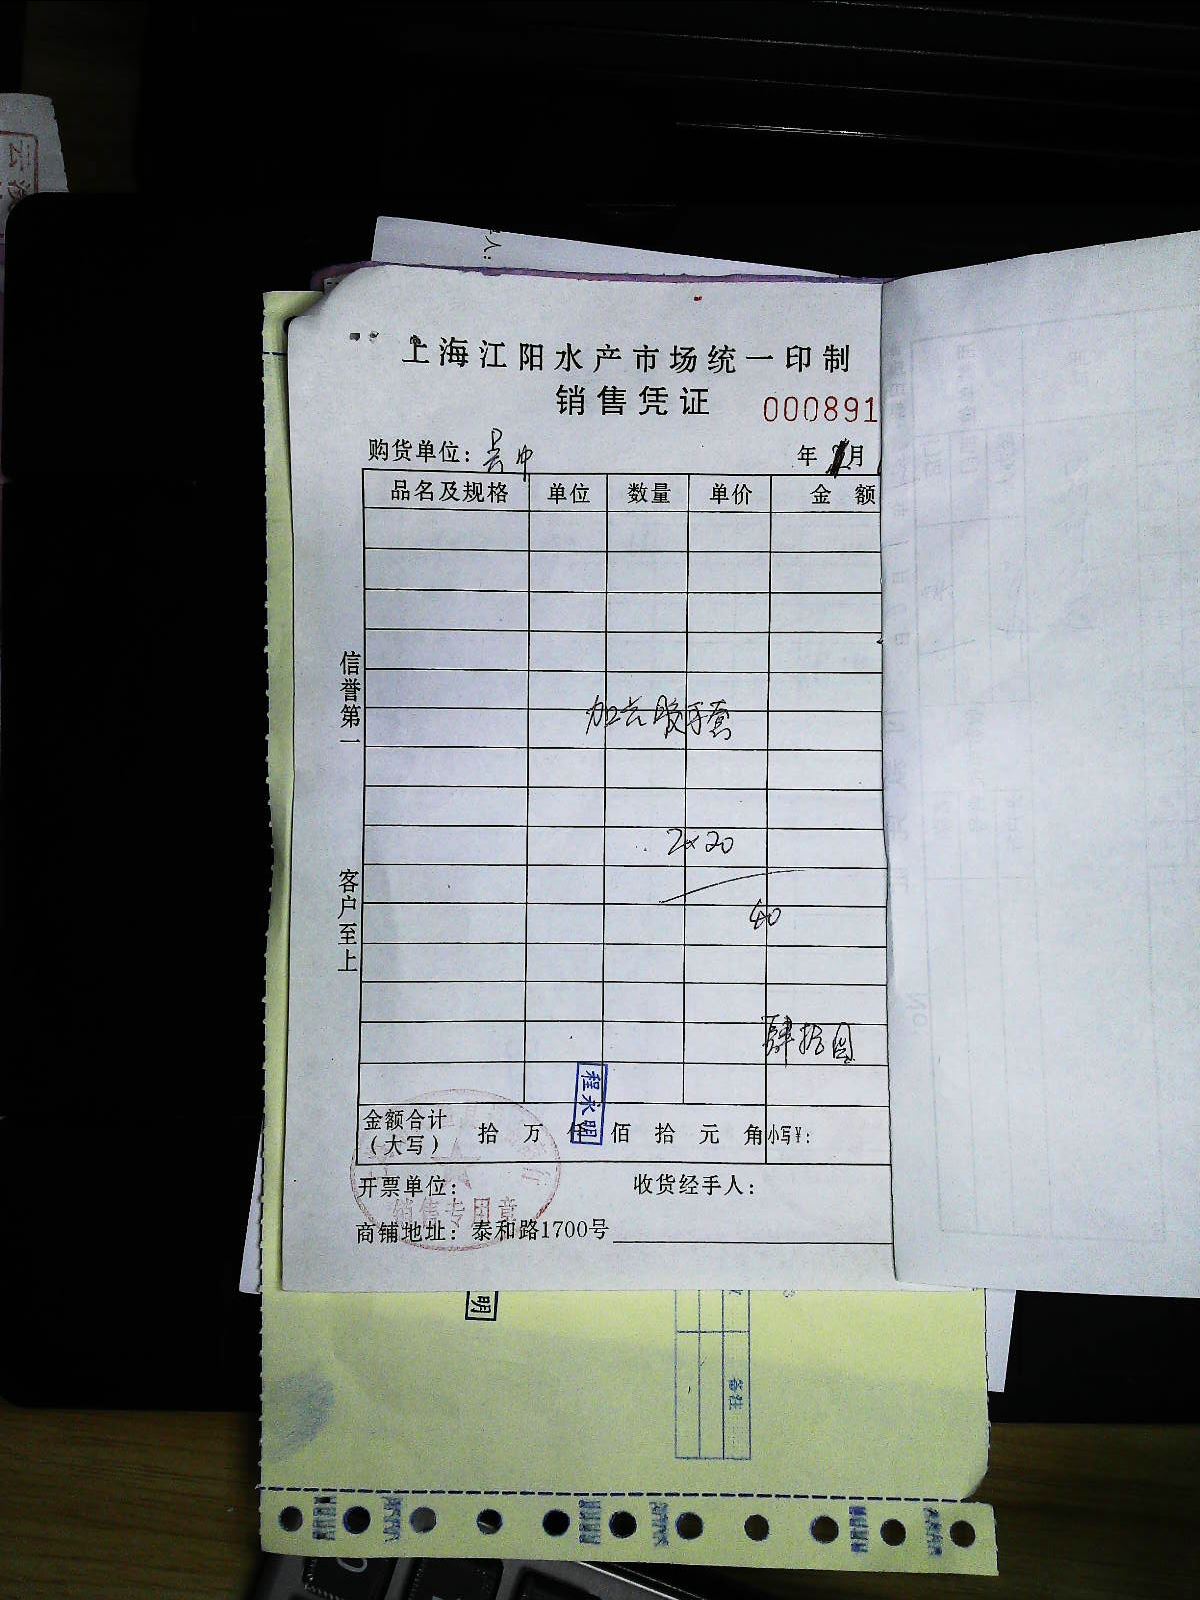 上海江阳水产市场统一印制
销售凭证 000891
购货单位： 年 月
品名及规格 单位 数量 单价 金额
信誉第一
客户至上
手套
2×20
40
肆拾圆
程永明
金额合计（大写） 拾 万 仟 佰 拾 元 角 小写￥：
开票单位： 收货经手人：
销售专用章
商铺地址：泰和路1700号
明
备注
人：